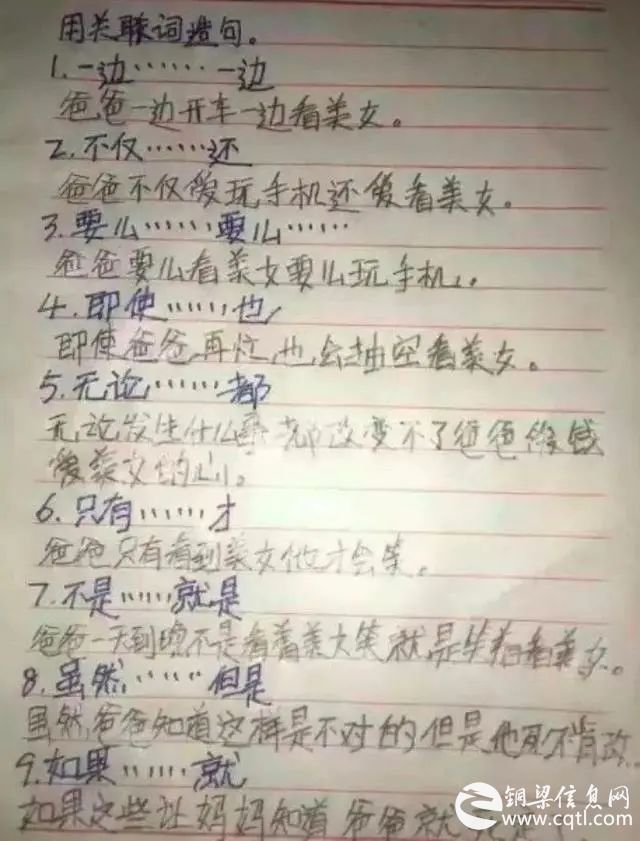 用关联词造句。
1.一边……一边
爸爸一边开车一边看美女。
2.不仅……还
爸爸不仅爱玩手机还爱看美女。
3.要么……要么……
爸爸要么看美女要么玩手机。
4.即使……也
即使爸爸再忙,也会抽空看美女。
5.无论……都
无论发生什么事都改变不了爸爸
爱美女的心。
6.只有……才
爸爸只有看到美女他才会笑。
7.不是……就是
爸爸一天到晚不是看着美女笑就是坐着看美女。
8.虽然……但是
虽然爸爸知道这样是不对的但是他死不肯改。
9.如果……就
如果这些让妈妈知道爸爸就
铜梁信息网
www.cqtl.com